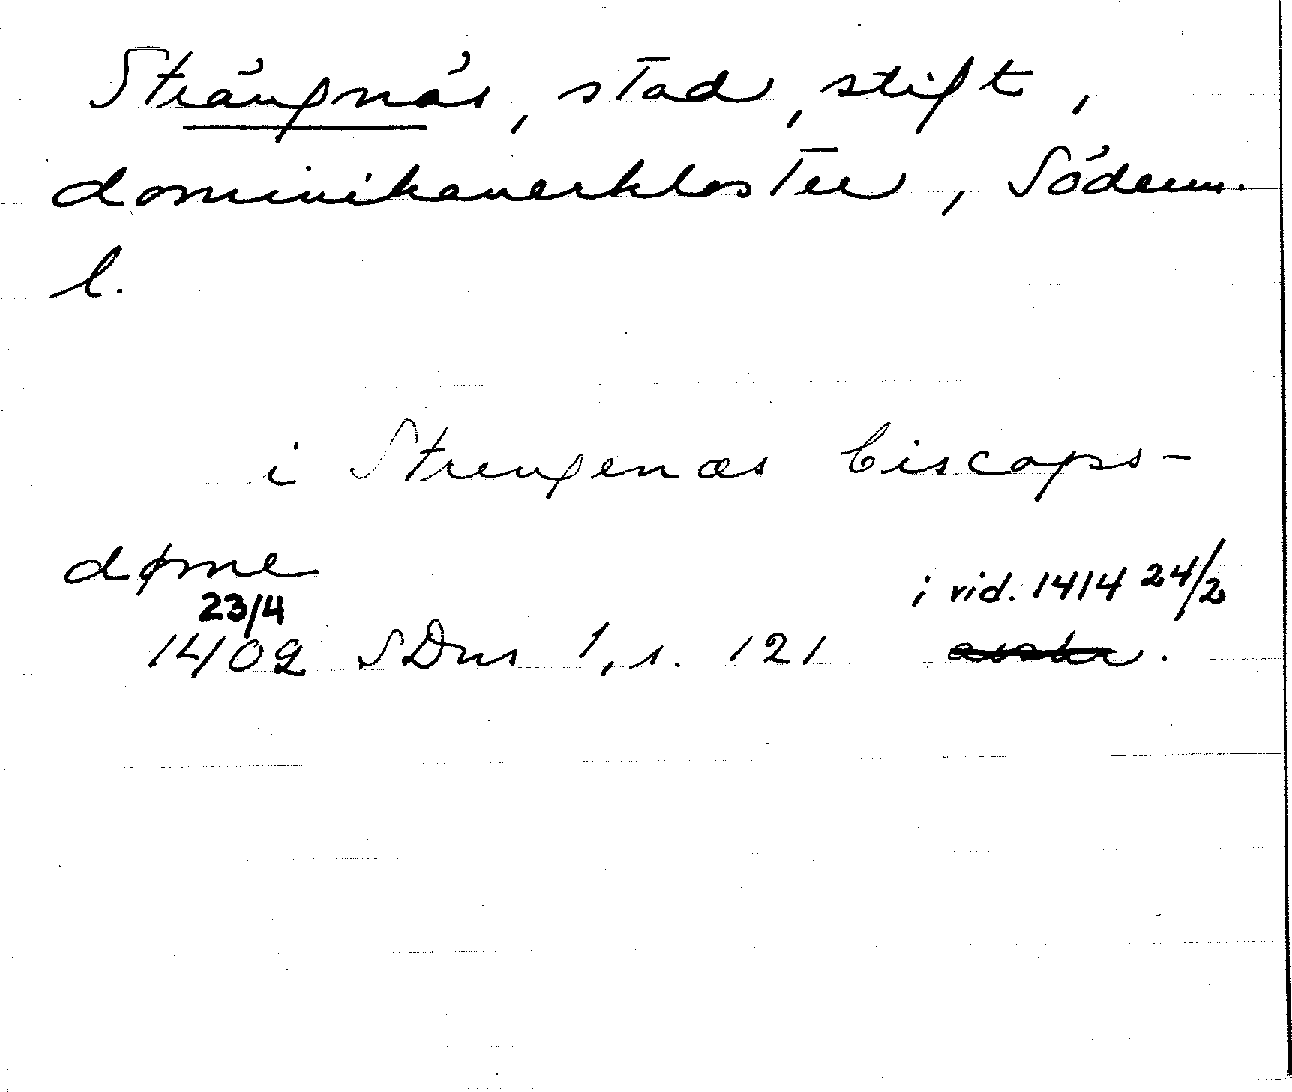 Strängnäs, stad, stift,
dominikanerkloster, Söderm.
l.
i Strengenæs biscops-
døme
23/4
1402 SDns 1, s. 121 i vid. 1414 24/2
avskr.